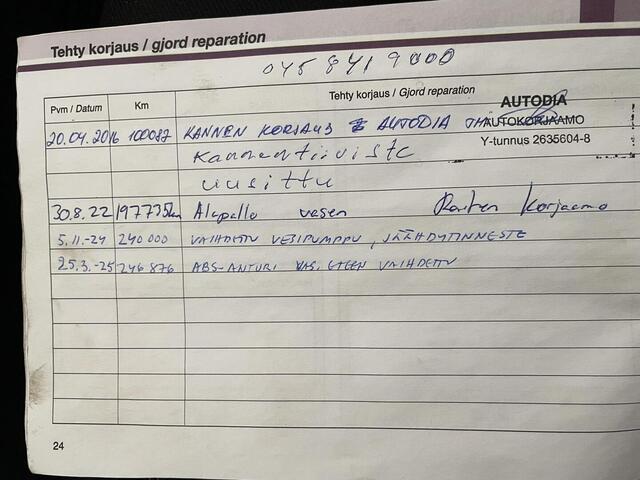 Tehty korjaus / gjord reparation
045 8419000
Pvm / Datum Km Tehty korjaus / Gjord reparation
AUTODIA
20.04.2016 100087 KANNEN KORJAUS AUTODIA
AUTOKORJAAMO
Kannentiiviste
Y-tunnus 2635604-8
uusittu
30.8.22 197735km Alapallo vasen Korjaamo
5.11.-24 240 000 VAIHDETTU VESIPUMPPU, JÄÄHDYTINNESTE
25.3.-25 246 876 ABS-ANTURI VAS. ETEEN VAIHDETTU
24